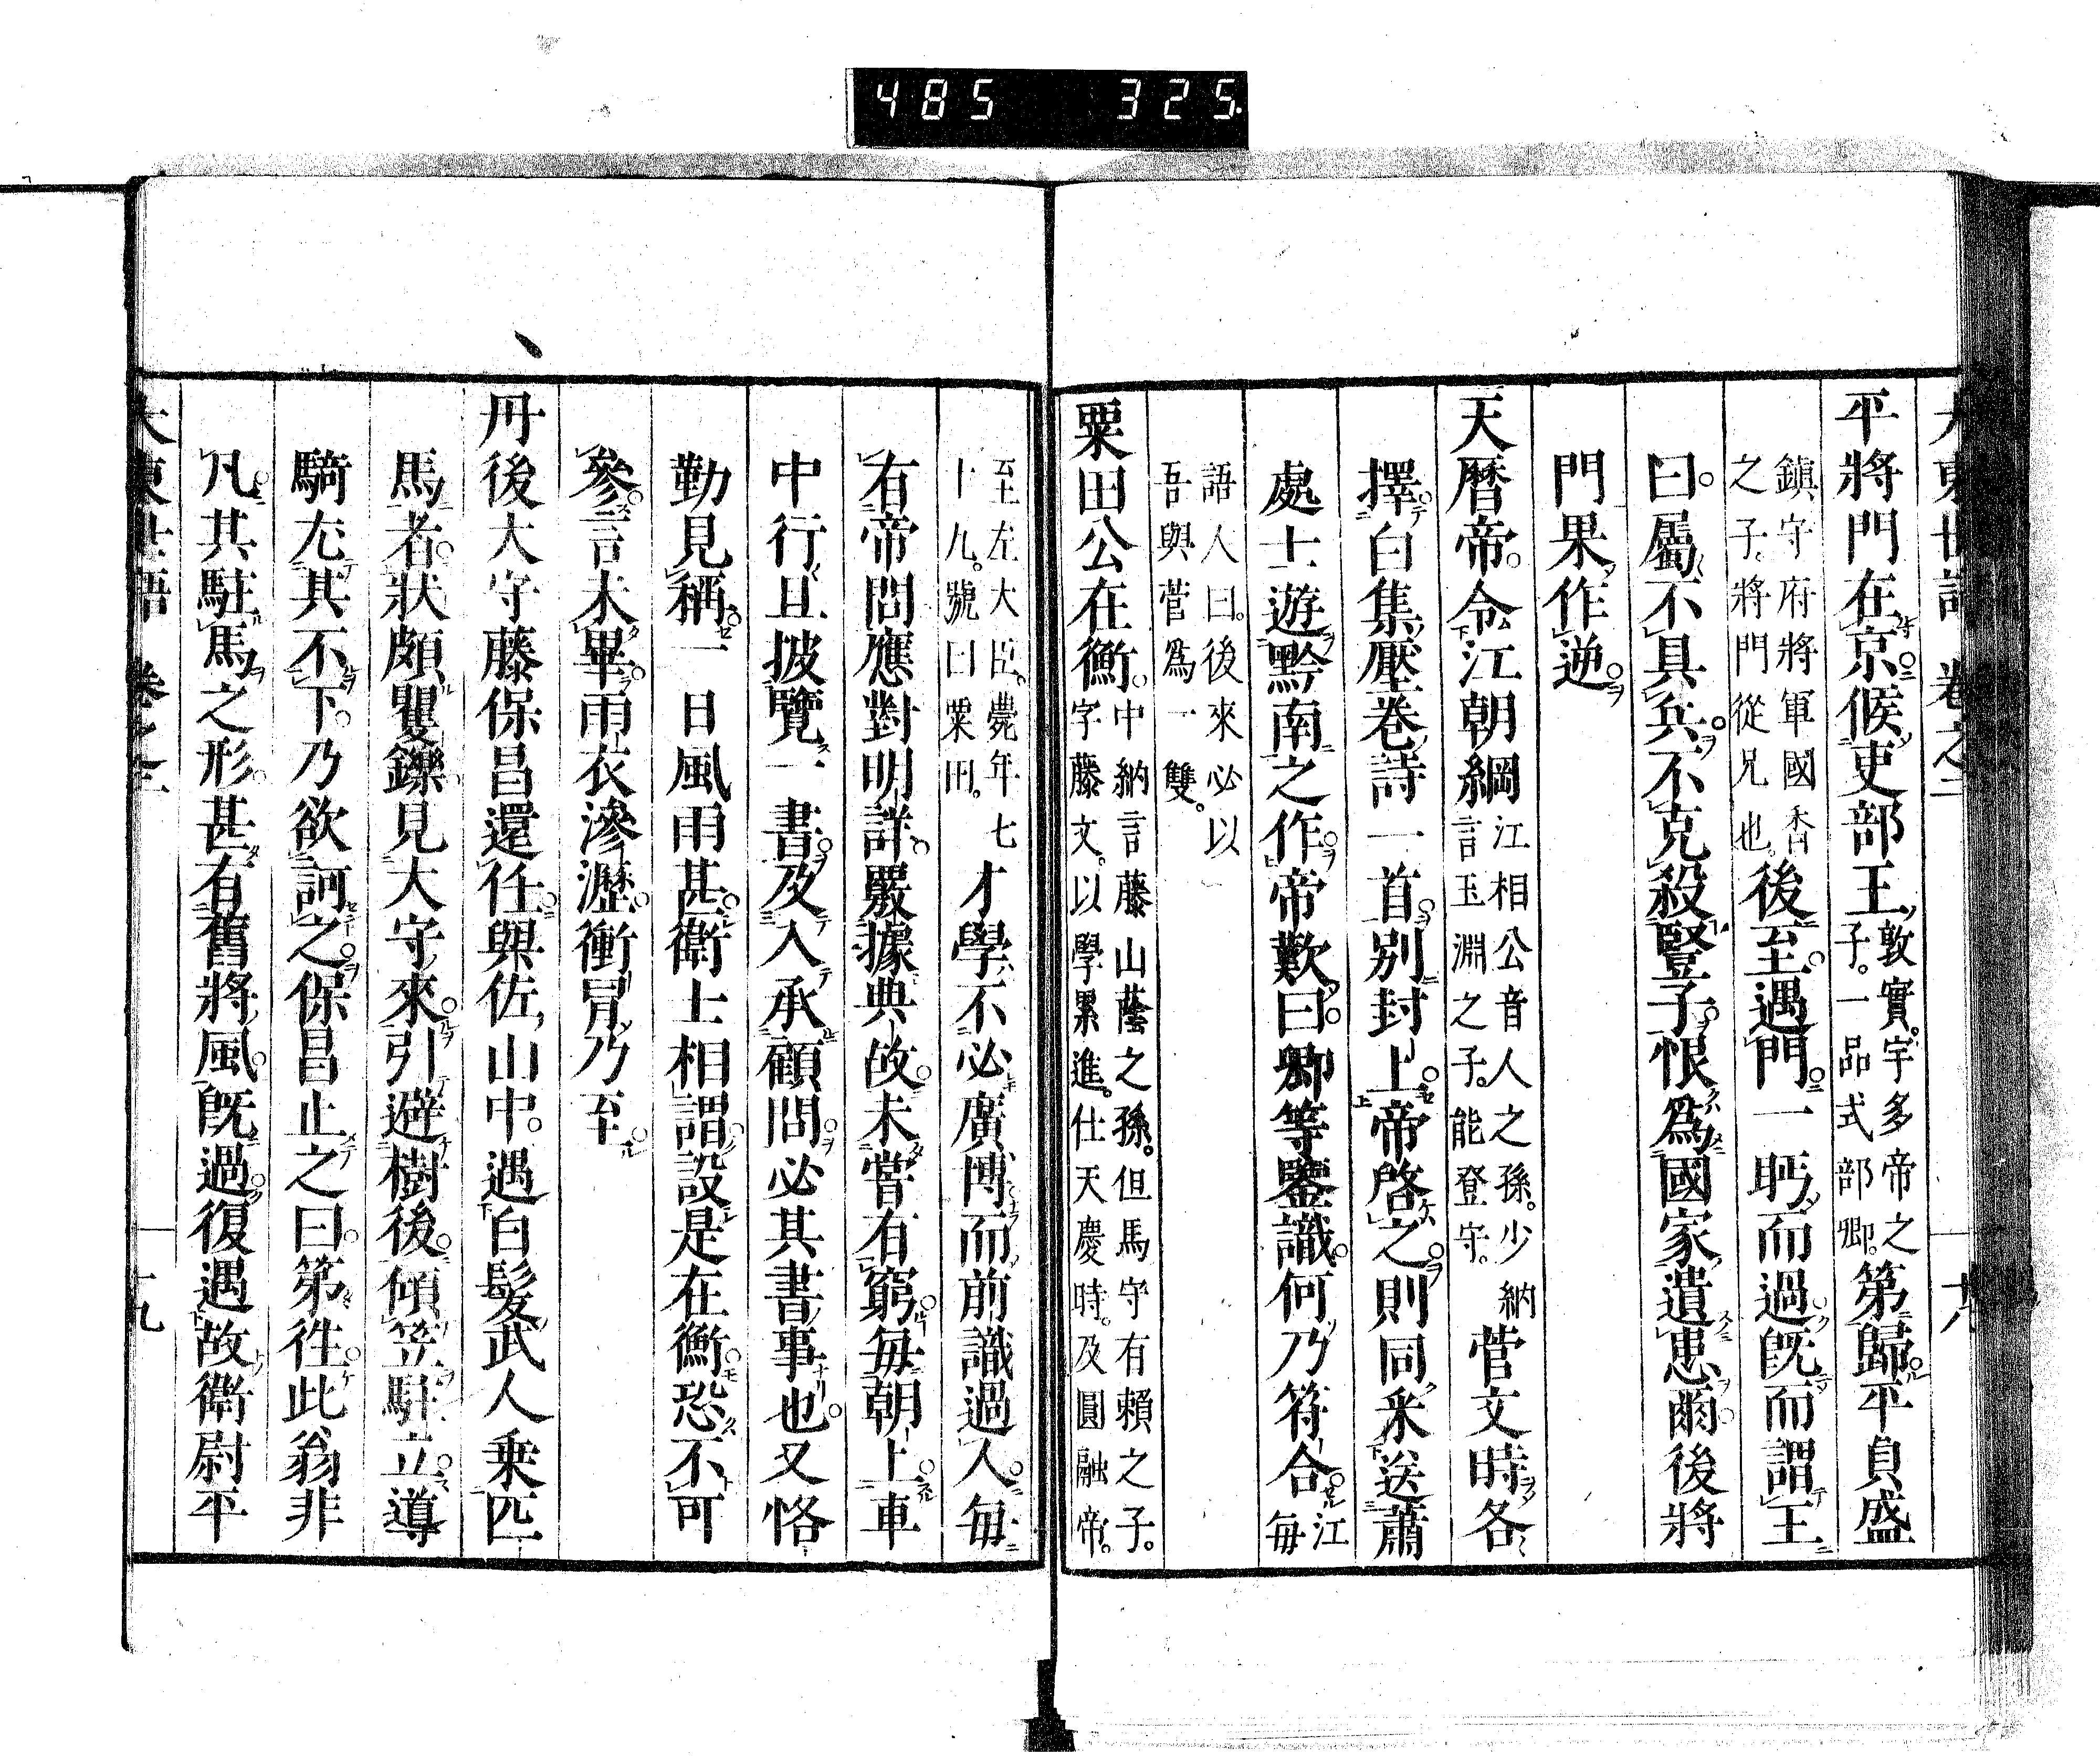 485 325
大東世語 卷之二 十八
平將門在京候吏部王敦實宇多帝之子。一品式部卿。第歸平貞盛
鎮守府將軍國香之子。將門從兄也。後至遇門一眄而過既而謂王
曰。屬不具兵不克殺豎子恨爲國家遺患爾後將
門果作逆
天曆帝令江朝綱江相公音人之孫。少納言玉淵之子。能登守。菅文時各
擇白集壓卷詩一首別封上帝啓之則同采送蕭
處士遊黔南之作帝歎曰。卿等鑒識何乃符合江每
語人曰。後來必以吾與菅爲一雙。
粟田公在衡。中納言藤山蔭之孫。但馬守有賴之子。字藤文。以學累進。仕天慶時。及圓融帝。
至左大臣。薨年七十九。號曰粟田。才學不必廣博而前識過人每
有帝問應對明詳嚴據典故未嘗有窮每朝上車
中行且披覽一書及入承顧問必其書事也又恪
勤見稱一日風雨甚衛士相謂設是在衡恐不可
參言未畢雨衣滲瀝衝冐乃至
丹後大守藤保昌還任與佐山中。遇白髮武人乗匹
馬者狀頗矍鑠見大守來引避樹後傾笠駐立導
騎尤其不下乃欲訶之保昌止之曰第徃此翁非
凡其駐馬之形甚有舊將風既過復遇故衛尉平
大東世語 卷之二 十九